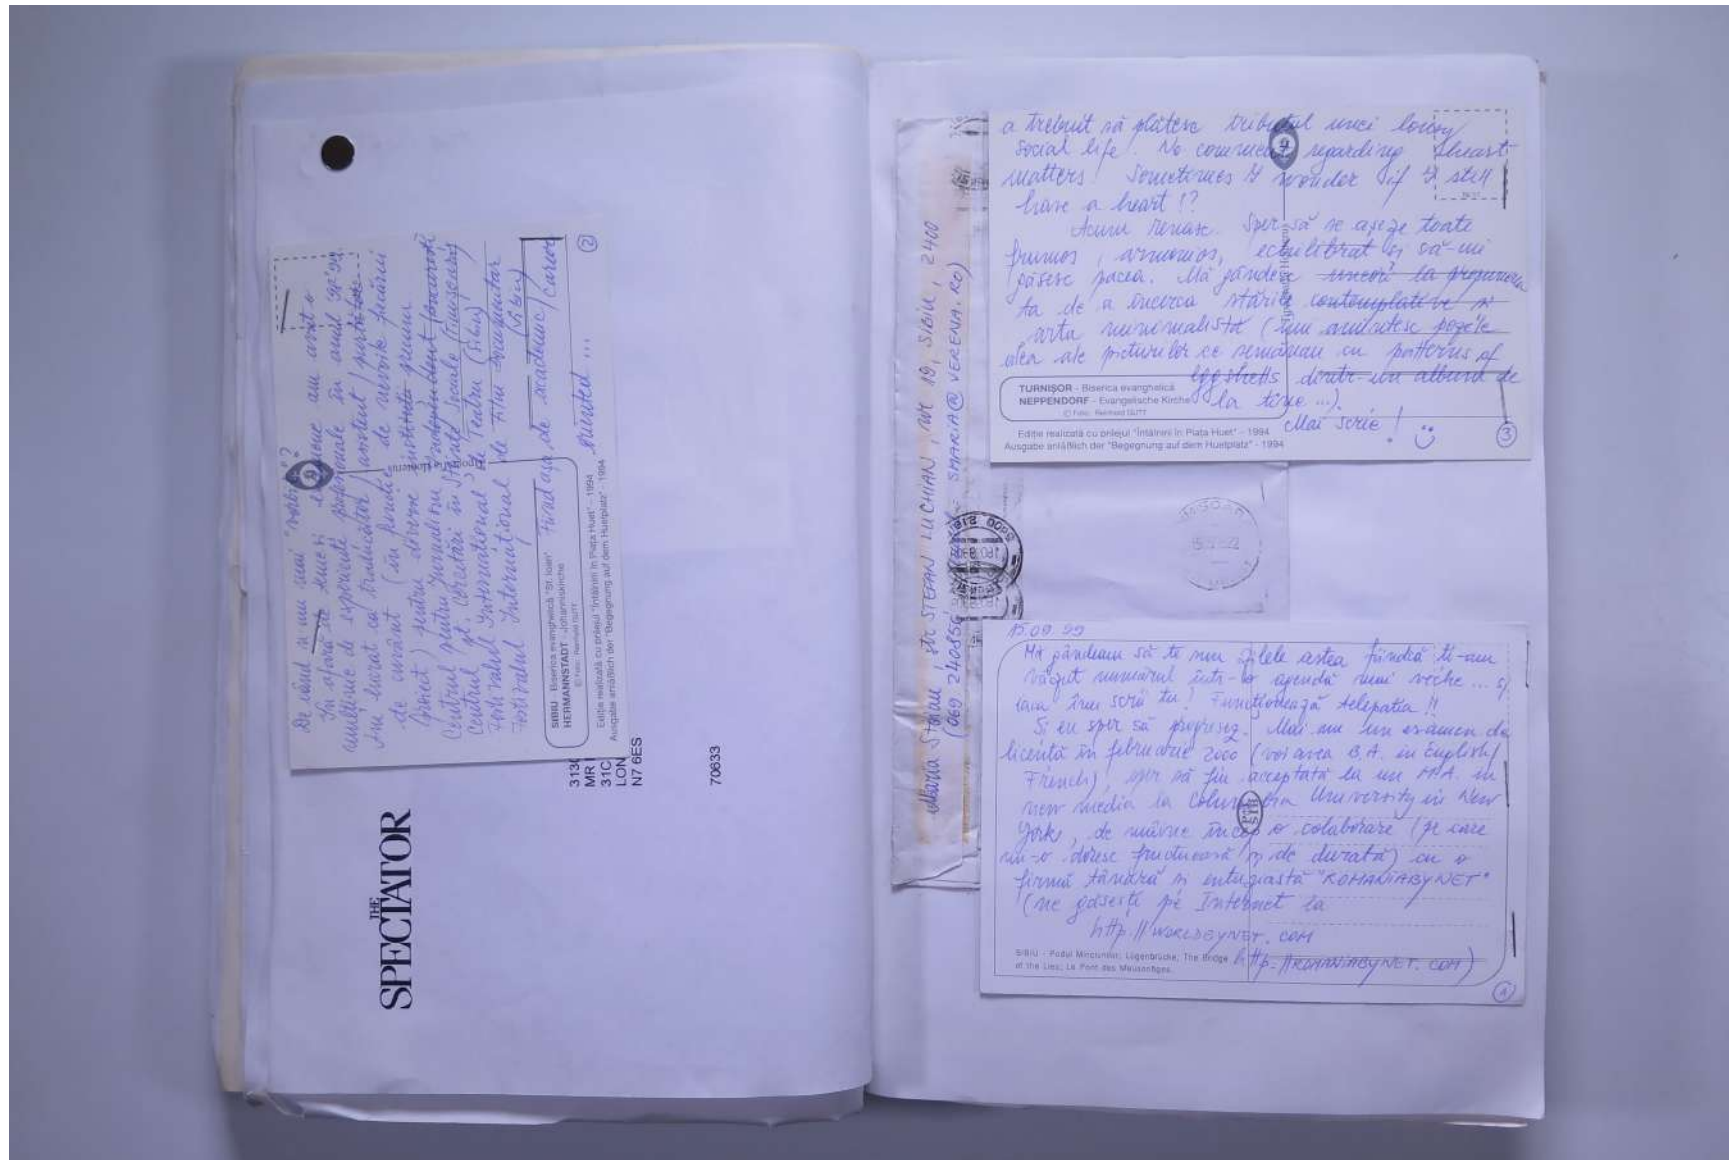 De când nu mai "vorbit"?
În afară de
multiple de experiențe profesionale în anul 98-99.
Am lucrat ca traducător / asistent /
de cuvânt (în funcție de nevoile fiecărui
proiect) pentru diverse instituții precum
Centrul pentru Jurnalism Independent
Centrul pt. Cercetări în Științele Sociale (Timișoara)
Festivalul Internațional de Teatru (Sibiu)
Festivalul Internațional de Film Documentar
(Sibiu)
așa, de academic / career
oriented ...
2
SIBIU Biserica evanghelică "St. Ioan"
HERMANNSTADT - Johanniskirche
© Foto: Reinhold GUTT
Ediție realizată cu prilejul "Întâlniri în Piața Huet" - 1994
Ausgabe anläßlich der "Begegnung auf dem Huetplatz" - 1994
MR
31C
LON
N7 6ES
70633
THE
SPECTATOR
ȘTEFAN LUCHIAN, 19, SIBIU, 2400
SMARIA@VERENA.RO)
a trebuit să plătesc tributul unei lousy
social life. No comment regarding heart
matters! Sometimes I wonder if I still
have a heart!?
Acum renasc. Sper să se așeze toate
frumos, armonios, echilibrat și să-mi
găsesc pacea. Mă gândesc uneori la propunerea
ta de a încerca stările contemplative și
arta minimalistă (îmi amintesc pozele
alea ale picturilor ce semănau cu patterns of
eggshells dintr-un album de
la tine ...).
Mai scrie!
3
TURNIȘOR - Biserica evanghelică
NEPPENDORF - Evangelische Kirche
© Foto: Reinhold GUTT
Ediție realizată cu prilejul "Întâlniri în Piața Huet" - 1994
Ausgabe anläßlich der "Begegnung auf dem Huetplatz" - 1994
15.09.99
Mă gândeam să te sun zilele astea fiindcă ți-am
văzut numărul într-o agendă mai veche ... și
iam îmi scrii tu! Funcționează telepatia!!
Și eu sper să progresez. Mai am un examen de
licență în februarie 2000 (voi avea B.A. in English/
French), sper să fiu acceptată la un M.A. in
new media la Columbia University in New
York, de mâine încep o colaborare (pe care
mi-o doresc fructuoasă și de durată) cu o
firmă tânără și entuziastă "ROMANIABYNET"
(ne găsești pe Internet la
http://WORLDBYNET.COM
http://ROMANIABYNET.COM)
SIBIU - Podul Minciunilor; Lügenbrücke; The Bridge
of the Lies; Le Pont des Mensonges.
1